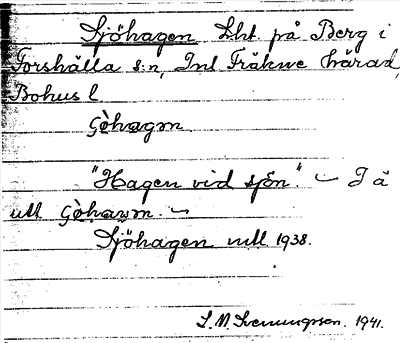 Sjöhagen Lht. på Berg i
Forshälla s:n, Inl Fräkne härad,
Bohus l
"Hagen vid sjön." – I ä
utt
Sjöhagen utt 1938.
S. M. Svenungsson. 1941.